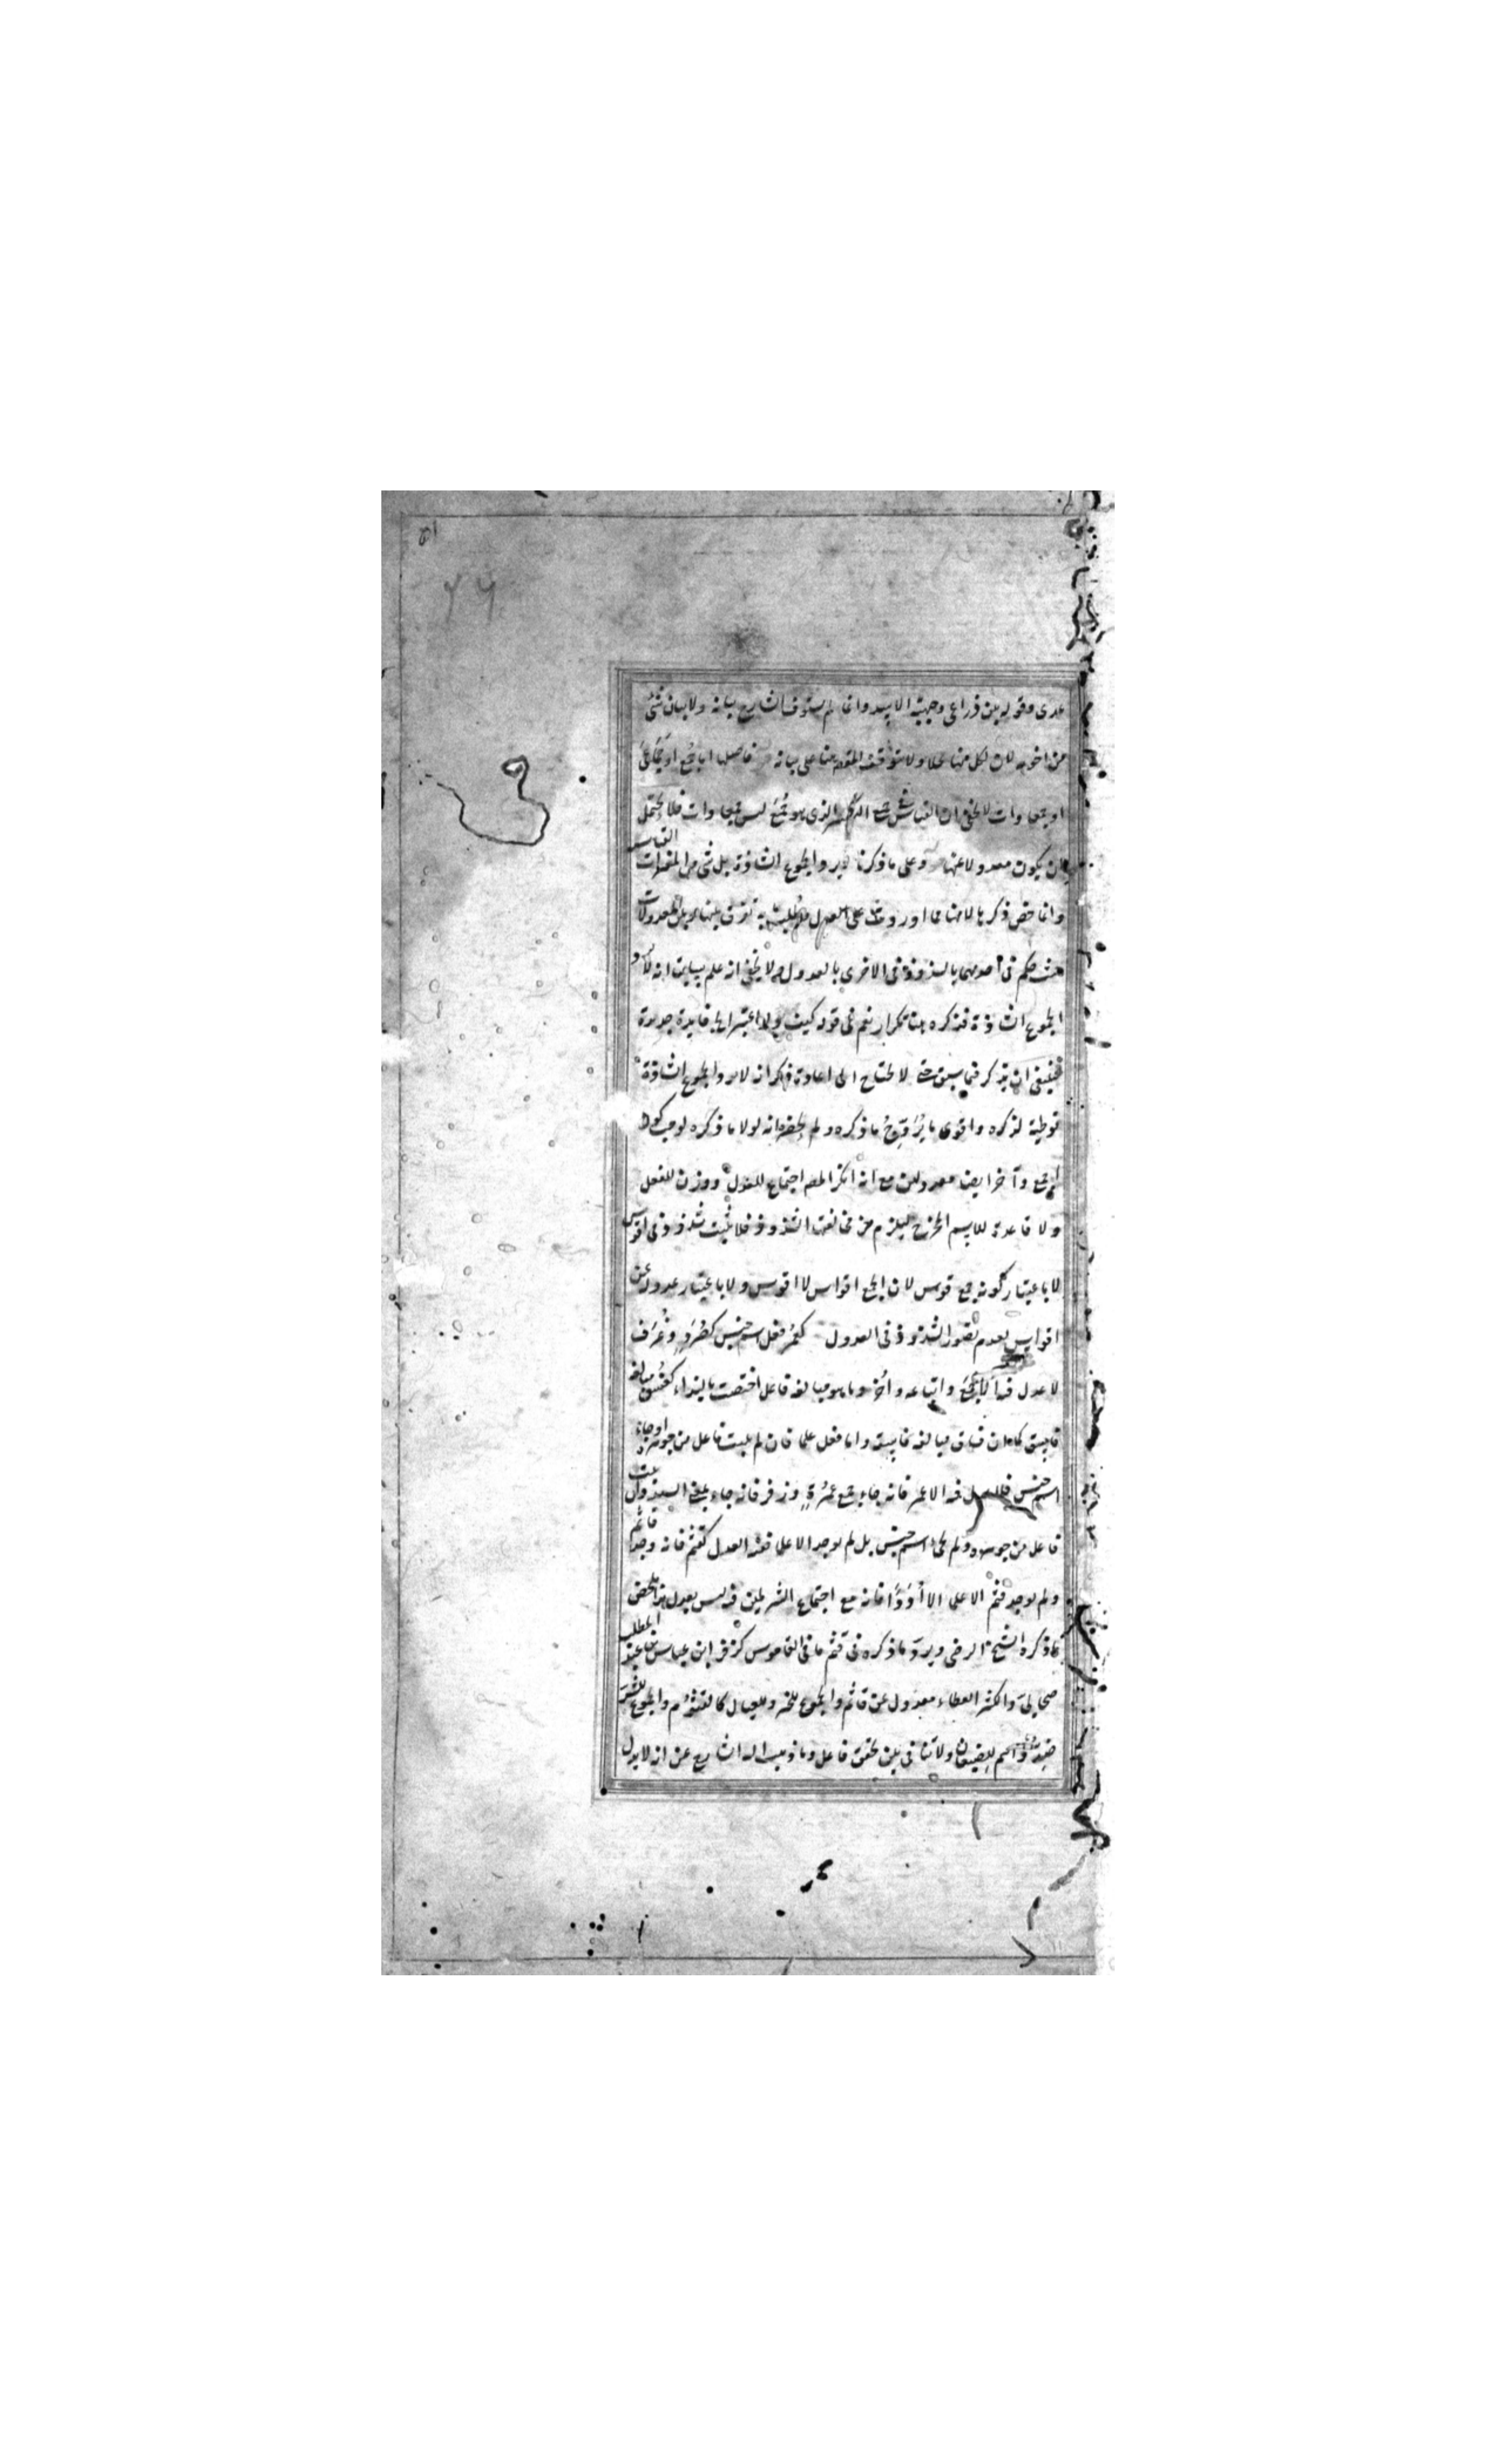 عدى وقوله بين ذراعى وجبهة الاسد وانما لم يستوف الشارح بيانه ولا بيان شئ
من اخويه لان لكل منها محلا ولا يتوقف المقصود هنا على بيانه فاصلها اما جمع او جماعى
او جمعاوات لا يخفى ان القياس فى جمع الذى هو جمع ليس جمعاوات فلا يحتمل
ان يكون معدولا عنها وعلى ما ذكرنا لا يرد الجموع الشاذة بل شئ من المغيرات
وانما خص ذكرها لانها مما اورد على العدل به تفرق بينها وبين المعدولات
حيث حكم فى احديهما بالشذوذ وفى الاخرى بالعدول ولا يخفى انه علم بسابق انه لا يرد
الجموع الشاذة فذكره هنا تكرار نعم فى قوله كيف ولو اعتبر الخ فايدة جديدة
فينبغى ان يذكر فيما سبق حتى لا يحتاج الى اعادة ذكر انه لا يرد الجموع الشاذة
توطية لذكره واقوى ما يروج ما ذكره ولم يحضره انه لولا ما ذكره لوجب كون
اجمع وآخر ايضا معدولين مع انه انكر المص اجتماع العدل ووزن الفعل
ولا قاعدة للاسم المخرج ليلزم من مخالفتها الشذوذ فلا يثبت شذوذ فى اقوس
لا باعتبار كونه جمع قوس لان الجمع اقواس لا اقوس ولا باعتبار عدوله عن
اقواس لعدم تصور الشذوذ فى العدول كعمر فعل اسم جنس كصرد وغرف
لا عدل فيه الا جمع واتباعه واخر وما هو مبالغة فاعل اختصت بالنداء كفسق مبالغة
فاسق كما ان فساق مبالغة فاسقة واما فعل علما فان لم يثبت فاعل من جوهره او جاء
اسم جنس فلا عدل فيه الا عمر فانه جاء جمع عمرة وزفر فانه جاء بمعنى السيد وان ثبت
فاعل من جوهره ولم يجئ اسم جنس بل لم يوجد الا علما ففيه العدل كقثم فانه وجد قاثم
ولم يوجد قثم الا علما الا اددا فانه مع اجتماع الشرطين فيه ليس بعدل هذا ملخص
ما ذكره الشيخ الرضى ويرد ما ذكره فى قثم ما فى القاموس كزفر ابن عباس بن عبد المطلب
صحابى والكثير العطاء معدول عن قاثم والجموع للخير وللعيال كالقثوم والجموع للشر
ضد واسم للضبعان ولا تنافى بين تحقق فاعل وما ذهب اليه الشارح من انه لا يدل